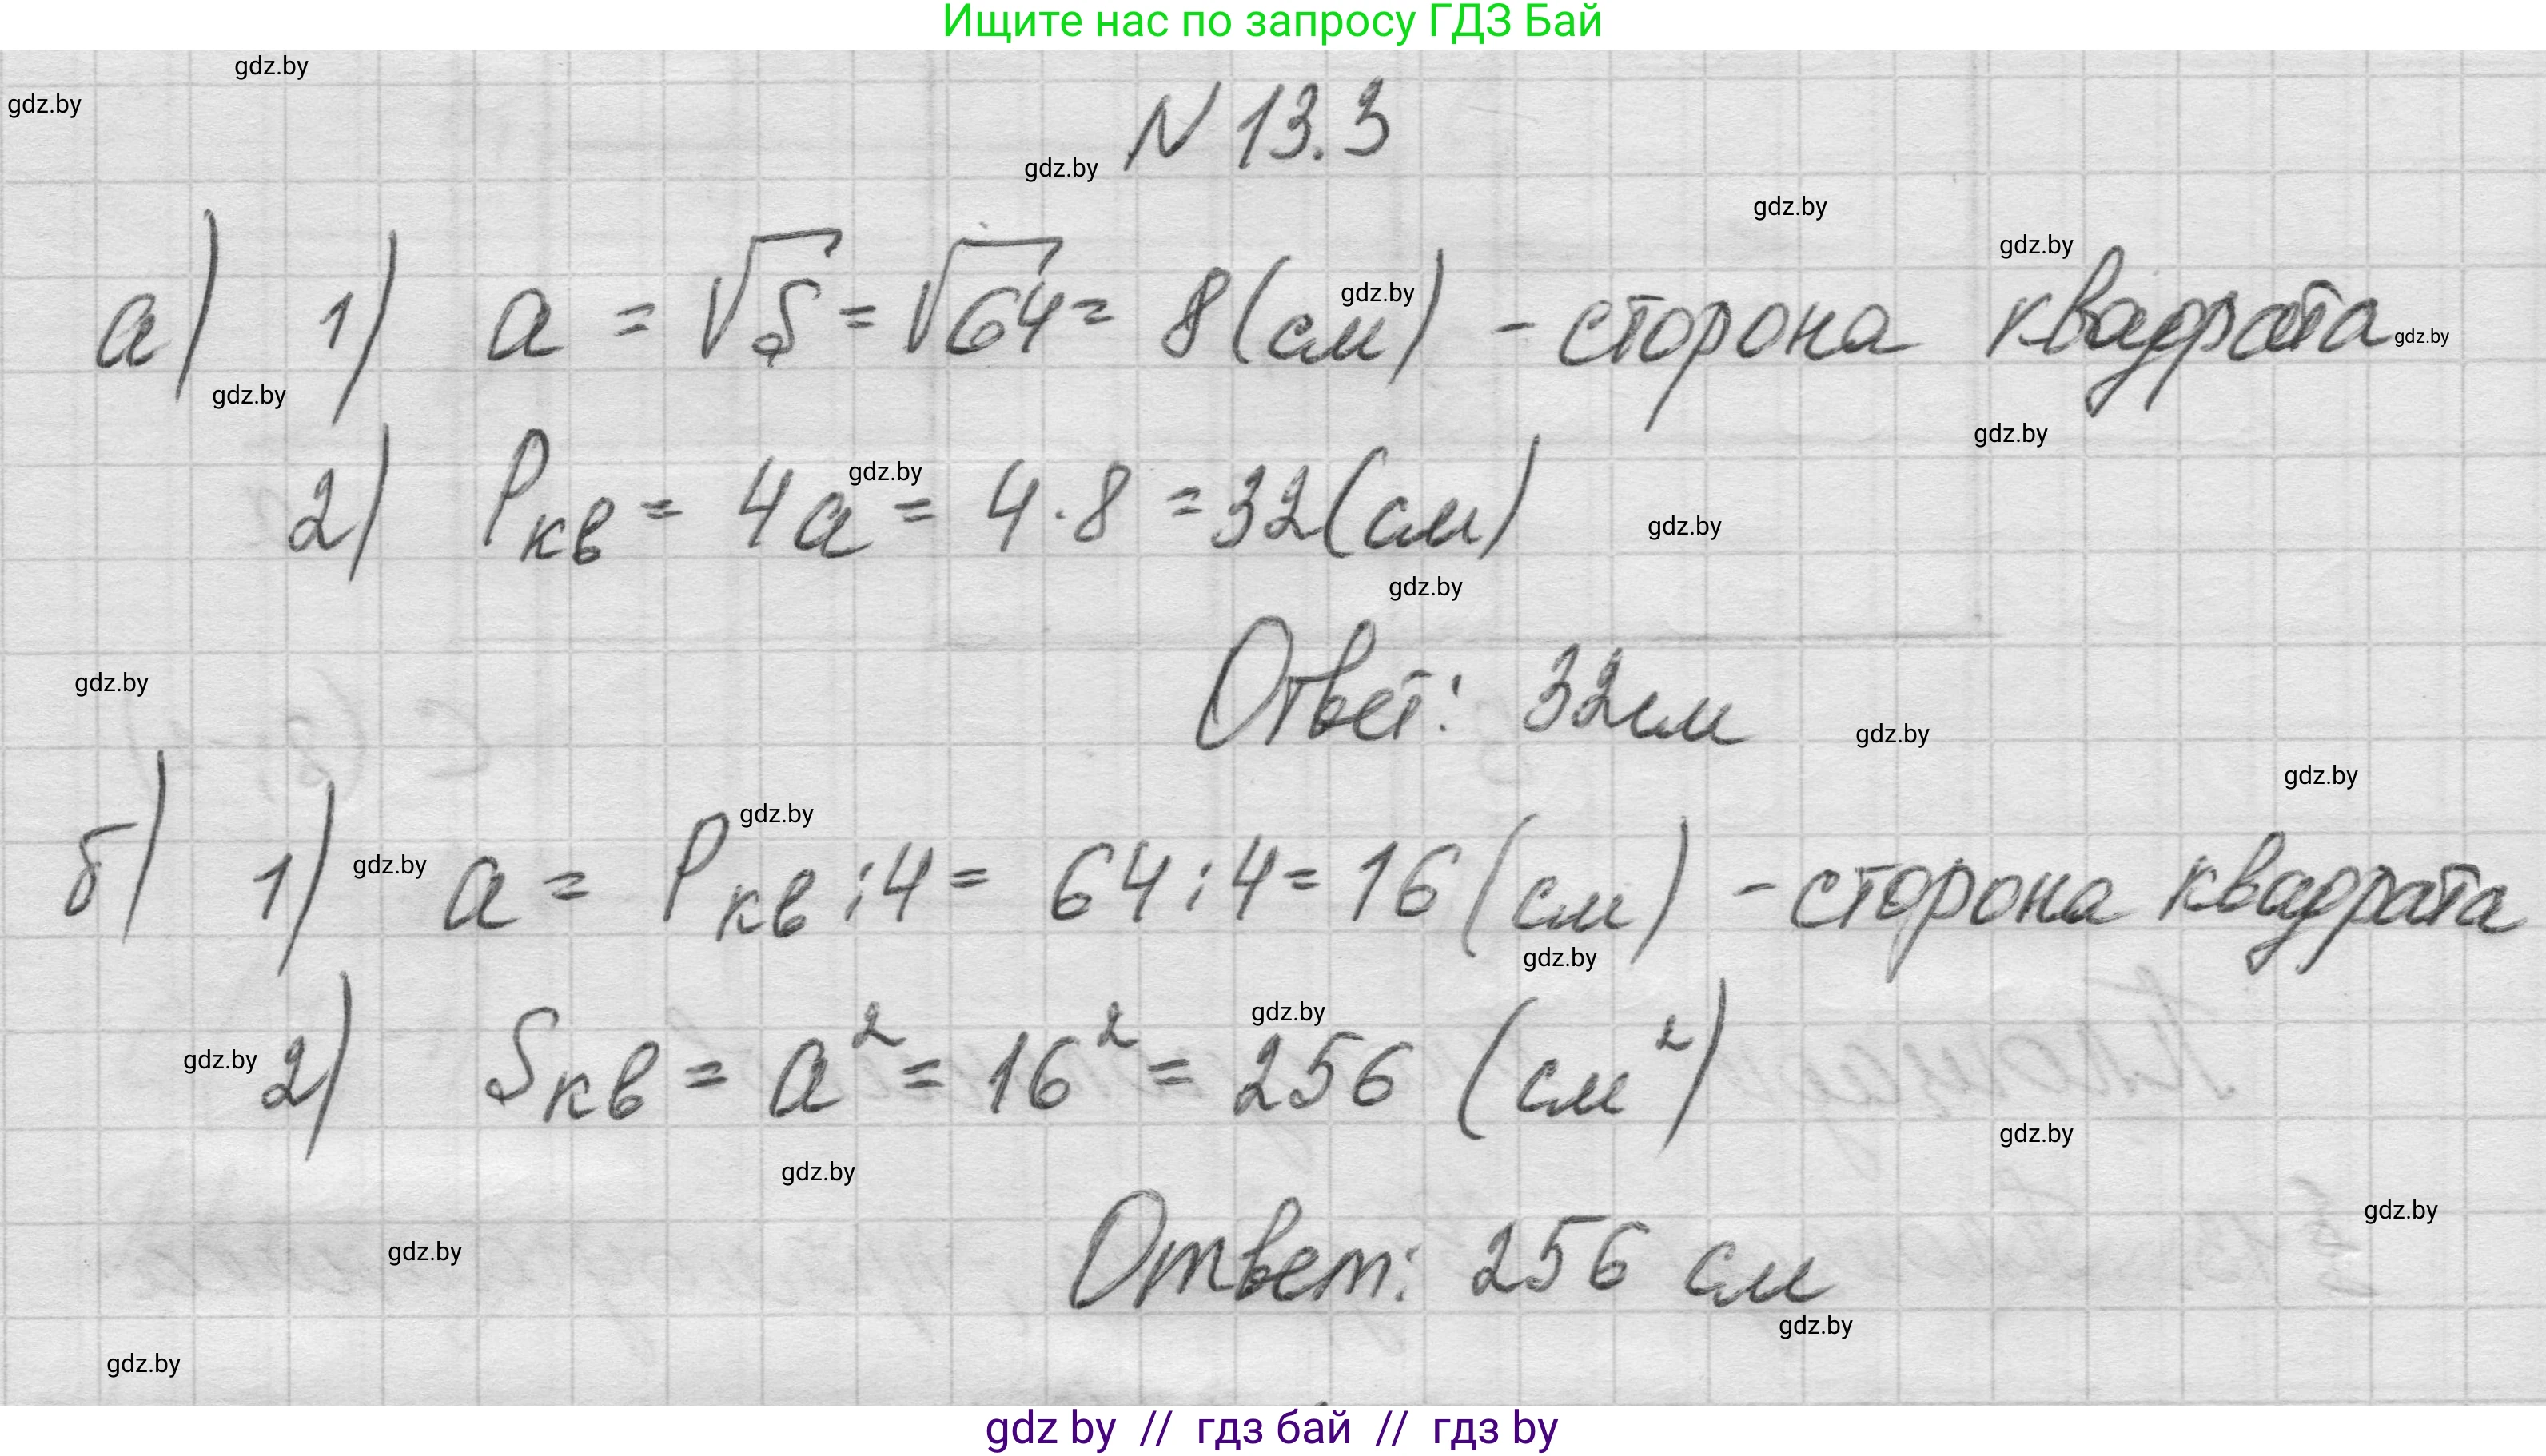 Ищите нас по запросу ГДЗ Бай
gdz.by
gdz.by
N 13.3
gdz.by
gdz.by
gdz.by
а) 1) a = √S = √64 = 8 (см) - сторона квадрата
gdz.by
gdz.by
gdz.by
gdz.by
2) Pкв = 4a = 4 · 8 = 32 (см)
gdz.by
gdz.by
gdz.by
Ответ: 32см
gdz.by
gdz.by
gdz.by
б) 1) a = Pкв : 4 = 64 : 4 = 16 (см) - сторона квадрата
gdz.by
gdz.by
gdz.by
gdz.by
2) Sкв = a² = 16² = 256 (см²)
gdz.by
gdz.by
gdz.by
Ответ: 256 см
gdz.by
gdz.by
gdz.by
gdz.by
gdz by // гдз бай // гдз by